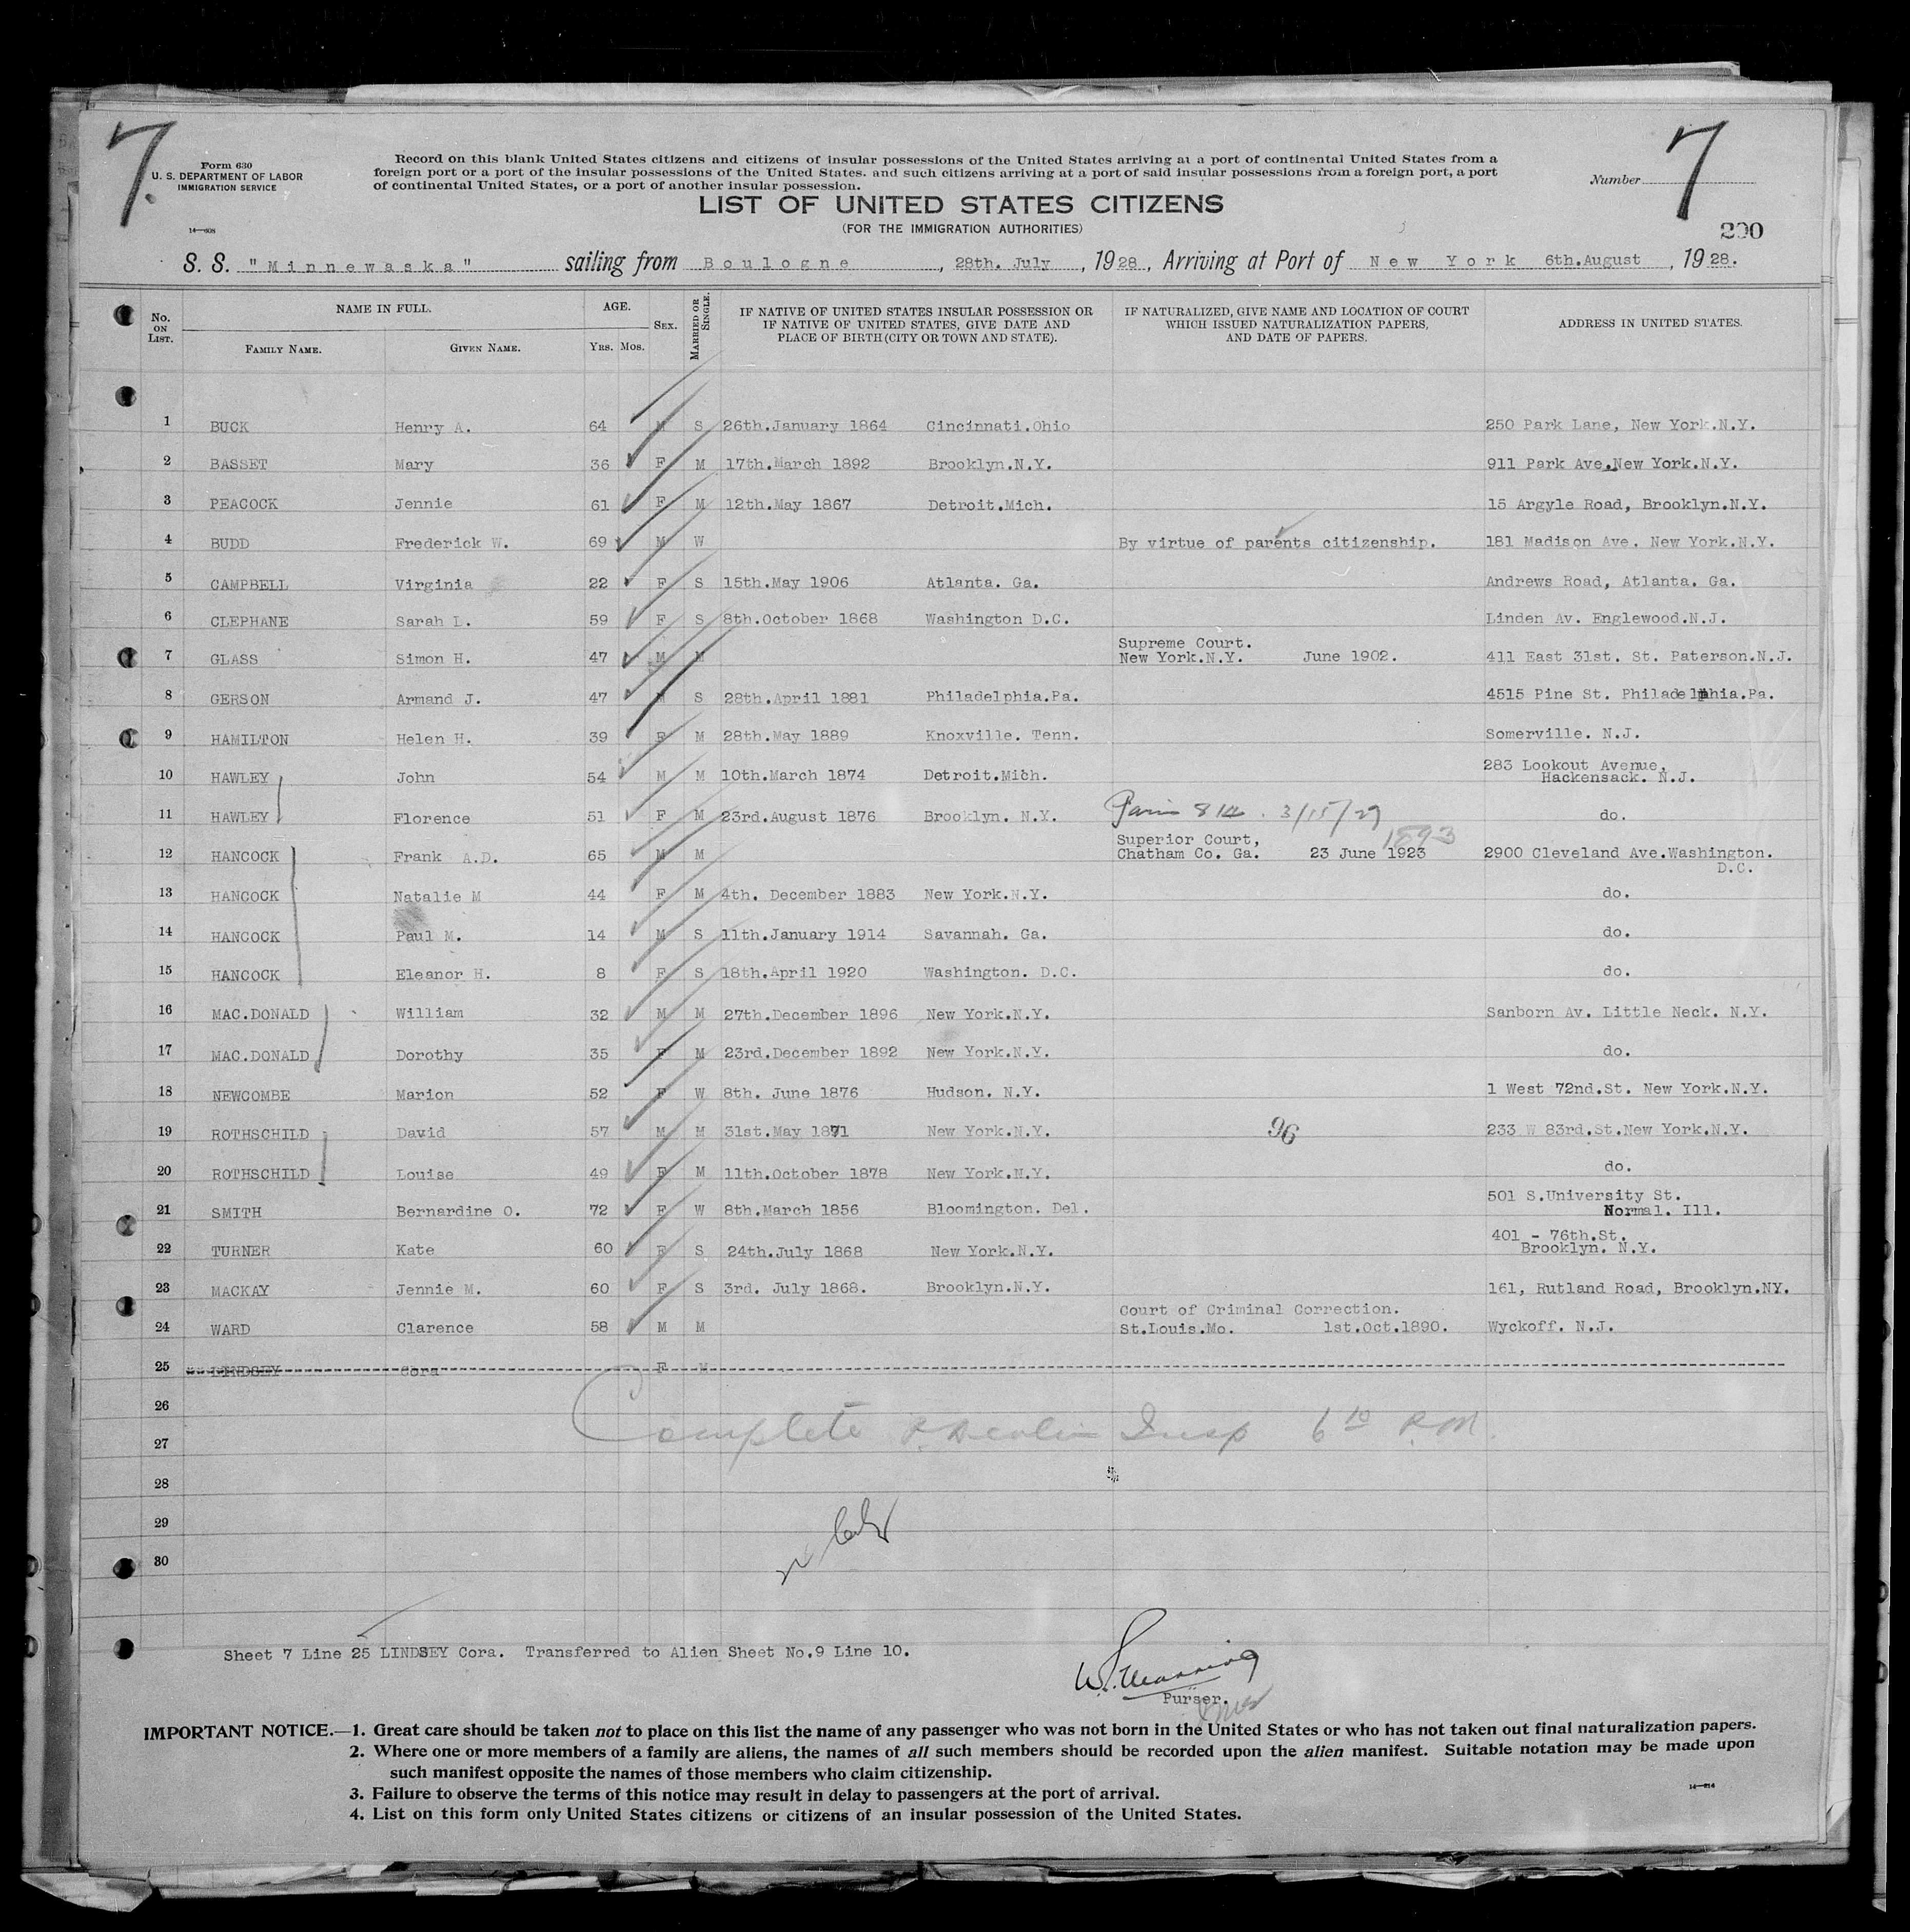 7.
7
Form 630
U. S. DEPARTMENT OF LABOR
IMMIGRATION SERVICE
14—608
Record on this blank United States citizens and citizens of insular possessions of the United States arriving at a port of continental United States from a
foreign port or a port of the insular possessions of the United States. and such citizens arriving at a port of said insular possessions from a foreign port, a port
of continental United States, or a port of another insular possession.
Number
LIST OF UNITED STATES CITIZENS
(FOR THE IMMIGRATION AUTHORITIES)
200
S. S. "Minnewaska" sailing from Boulogne, 28th. July, 1928, Arriving at Port of New York 6th.August, 1928.
No. ON LIST. NAME IN FULL. FAMILY NAME. GIVEN NAME. AGE. YRS. MOS. SEX. MARRIED OR SINGLE. IF NATIVE OF UNITED STATES INSULAR POSSESSION OR IF NATIVE OF UNITED STATES, GIVE DATE AND PLACE OF BIRTH (CITY OR TOWN AND STATE). IF NATURALIZED, GIVE NAME AND LOCATION OF COURT WHICH ISSUED NATURALIZATION PAPERS, AND DATE OF PAPERS. ADDRESS IN UNITED STATES.
1 BUCK Henry A. 64 M S 26th.January 1864 Cincinnati.Ohio 250 Park Lane, New York.N.Y.
2 BASSET Mary 36 F M 17th.March 1892 Brooklyn.N.Y. 911 Park Ave.New York.N.Y.
3 PEACOCK Jennie 61 F M 12th.May 1867 Detroit.Mich. 15 Argyle Road, Brooklyn.N.Y.
4 BUDD Frederick W. 69 M W By virtue of parents citizenship. 181 Madison Ave. New York.N.Y.
5 CAMPBELL Virginia 22 F S 15th.May 1906 Atlanta. Ga. Andrews Road, Atlanta. Ga.
6 CLEPHANE Sarah L. 59 F S 8th.October 1868 Washington D.C. Linden Av. Englewood.N.J.
Supreme Court.
7 GLASS Simon H. 47 M M New York.N.Y. June 1902. 411 East 31st. St. Paterson.N.J.
8 GERSON Armand J. 47 M S 28th.April 1881 Philadelphia.Pa. 4515 Pine St. Philadelphia.Pa.
9 HAMILTON Helen H. 39 F M 28th.May 1889 Knoxville. Tenn. Somerville. N.J.
283 Lookout Avenue,
10 HAWLEY John 54 M M 10th.March 1874 Detroit.Mich. Hackensack. N.J.
11 HAWLEY Florence 51 F M 23rd.August 1876 Brooklyn. N.Y. 3/15/29 do.
Superior Court, 1893
12 HANCOCK Frank A.D. 65 M M Chatham Co. Ga. 23 June 1923 2900 Cleveland Ave.Washington.
D.C.
13 HANCOCK Natalie M 44 F M 4th. December 1883 New York.N.Y. do.
14 HANCOCK Paul M. 14 M S 11th.January 1914 Savannah. Ga. do.
15 HANCOCK Eleanor H. 8 F S 18th.April 1920 Washington. D.C. do.
16 MAC.DONALD William 32 M M 27th.December 1896 New York.N.Y. Sanborn Av. Little Neck. N.Y.
17 MAC.DONALD Dorothy 35 F M 23rd.December 1892 New York.N.Y. do.
18 NEWCOMBE Marion 52 F W 8th. June 1876 Hudson. N.Y. 1 West 72nd.St. New York.N.Y.
19 ROTHSCHILD David 57 M M 31st.May 1871 New York.N.Y. 96 233 W 83rd.St.New York.N.Y.
20 ROTHSCHILD Louise 49 F M 11th.October 1878 New York.N.Y. do.
501 S.University St.
21 SMITH Bernardine O. 72 F W 8th.March 1856 Bloomington. Del. Normal. Ill.
401 - 76th.St.
22 TURNER Kate 60 F S 24th.July 1868 New York.N.Y. Brooklyn. N.Y.
23 MACKAY Jennie M. 60 F S 3rd. July 1868. Brooklyn.N.Y. 161, Rutland Road, Brooklyn.NY.
Court of Criminal Correction.
24 WARD Clarence 58 M M St.Louis.Mo. 1st.Oct.1890. Wyckoff. N.J.
25 LINDSEY Cora F M
26
Complete Insp 6 10 P.M.
27
28
29
30
Sheet 7 Line 25 LINDSEY Cora. Transferred to Alien Sheet No.9 Line 10.
Purser.
IMPORTANT NOTICE.—1. Great care should be taken not to place on this list the name of any passenger who was not born in the United States or who has not taken out final naturalization papers.
2. Where one or more members of a family are aliens, the names of all such members should be recorded upon the alien manifest. Suitable notation may be made upon
such manifest opposite the names of those members who claim citizenship.
3. Failure to observe the terms of this notice may result in delay to passengers at the port of arrival.
14—614
4. List on this form only United States citizens or citizens of an insular possession of the United States.